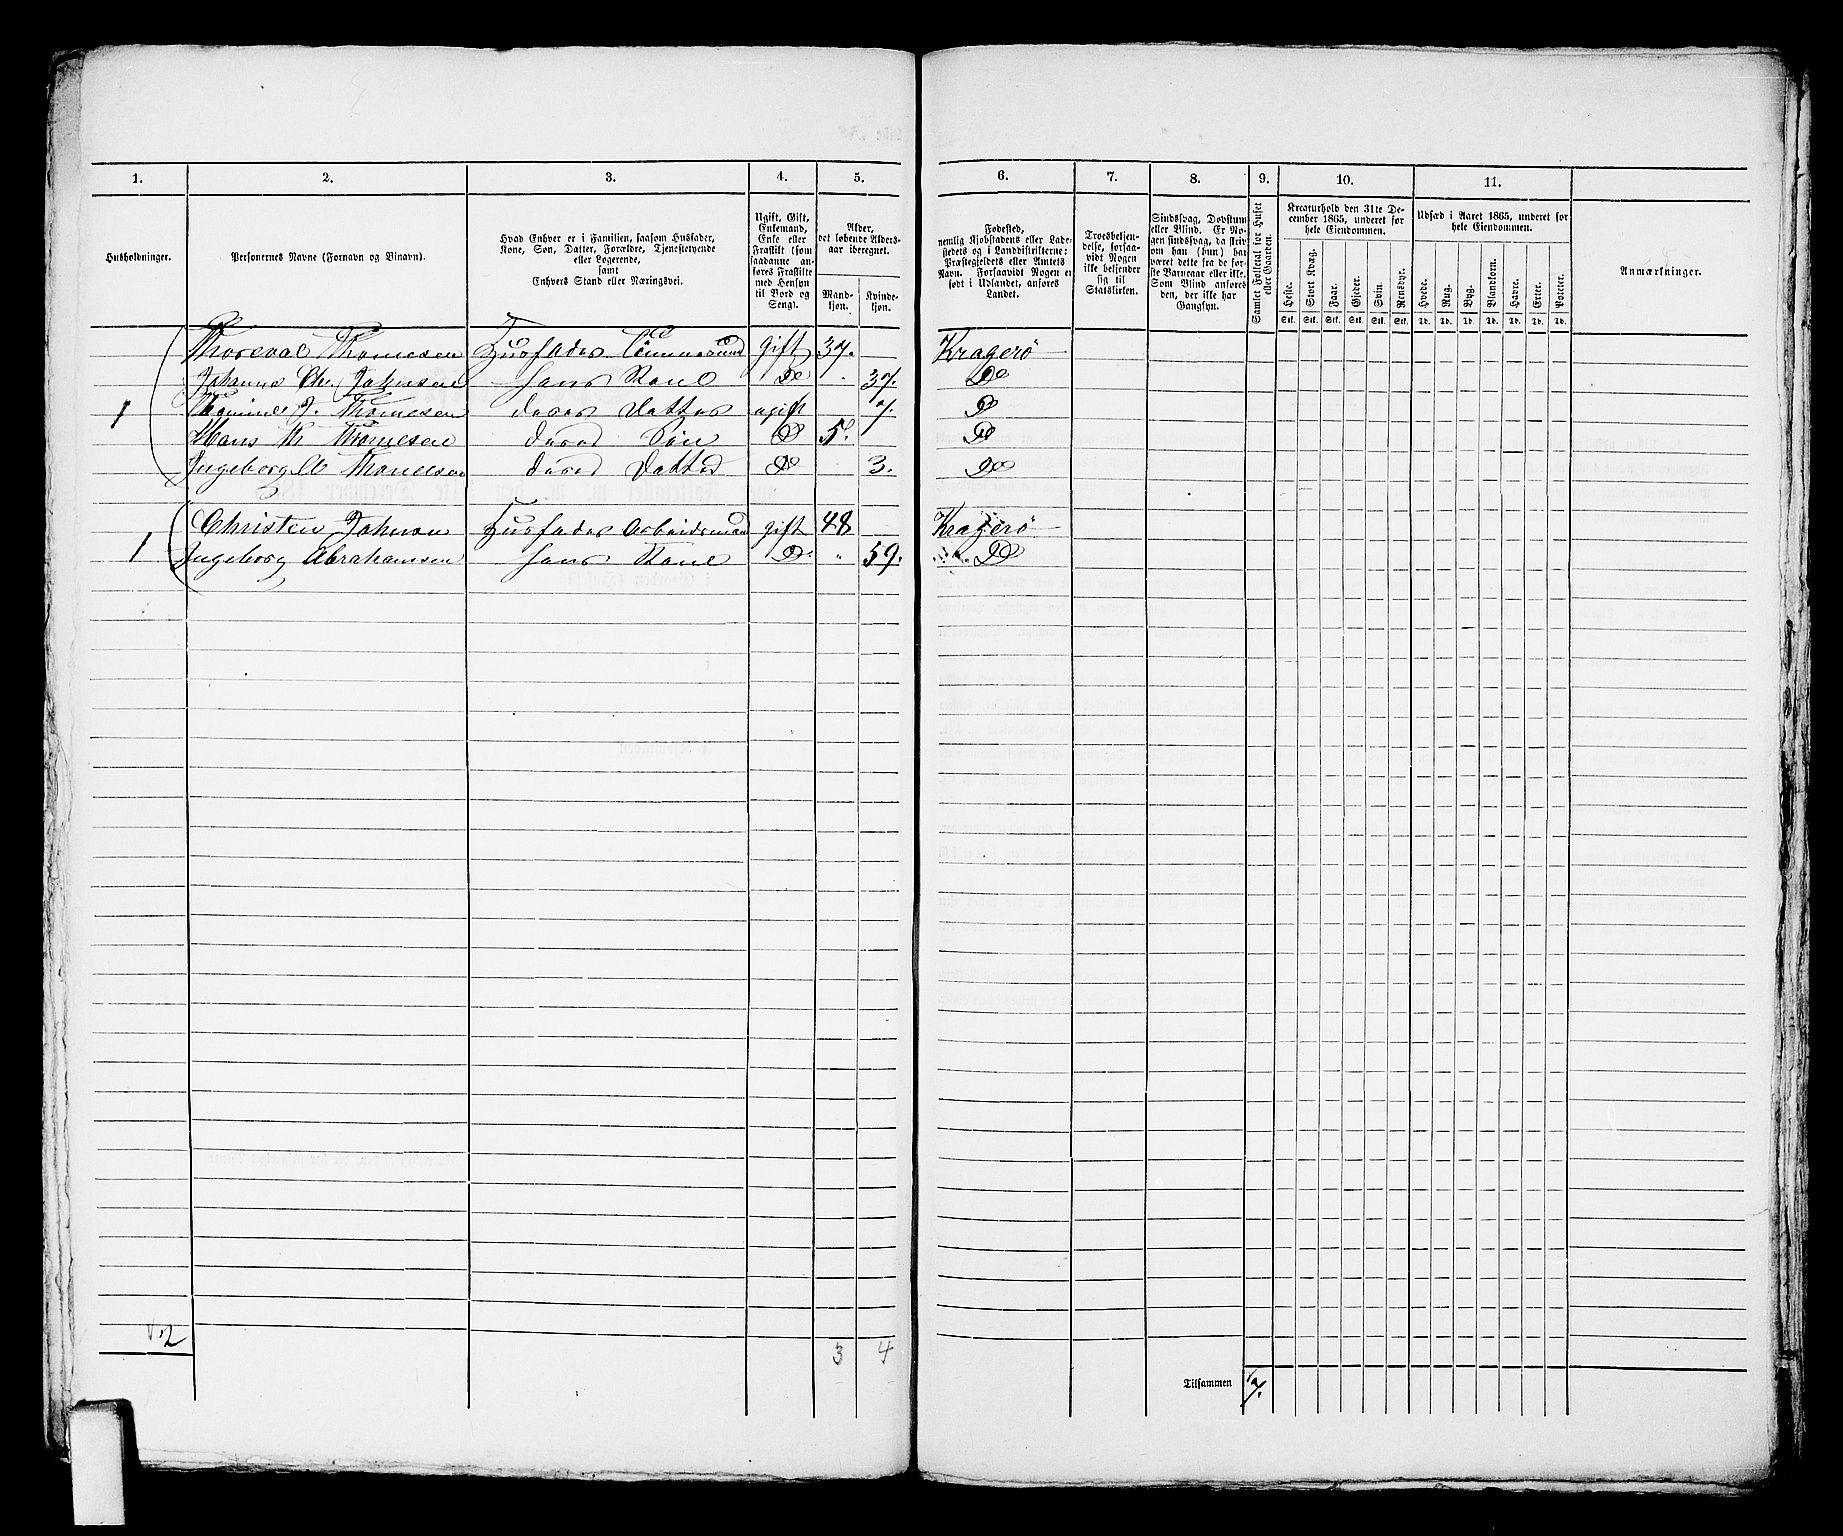 1. 2. 3. 4. 5. 6. 7. 8. 9. 10. 11.
Husholdninger.
Personernes Navne (Fornavn og Binavn).
Hvad Enhver er i Familien, saasom Husfader,
Kone, Søn, Datter, Forældre, Tjenestetyende
eller Logerende,
samt
Enhvers Stand eller Næringsvei.
Ugift, Gift,
Enkemand,
Enke eller
Fraskilt (som
saadanne an-
føres Fraskilte
med Hensyn
til Bord og
Seng).
Alder,
det løbende Alders-
aar iberegnet.
Mand-
kjøn.
Kvinde-
kjøn.
Fødested,
nemlig Kjøbstadens eller Lade-
stedets og i Landdistrikterne:
Præstegjeldets eller Amtets
Navn. Forsaavidt Nogen er
født i Udlandet, anføres
Landet.
Troesbekjen-
delse, forsaa-
vidt Nogen
ikke bekjender
sig til
Statskirken.
Sindssvag, Døvstum
eller Blind. Er No-
gen sindssvag, da skriv
om han (hun) har
været dette fra de før-
ste Barneaar eller ikke.
Som Blind anføres
den, der ikke har
Gangsyn.
Samlet Folketal for Huset
eller Gaarden.
Kreaturhold den 31te De-
cember 1865, underet for
hele Eiendommen.
Heste. Stort Kvæg. Faar. Gjeder. Svin. Rensdyr.
Stk. Stk. Stk. Stk. Stk. Stk.
Udsæd i Aaret 1865, underet for
hele Eiendommen.
Hvede. Rug. Byg. Blandkorn. Havre. Erter. Poteter.
Td. Td. Td. Td. Td. Td. Td.
Anmærkninger.
Thorval Thomesen Husfader gift 37. Kragerø
Johanne Chr. Johnsen hans Kone Do 37. Do
1 J. Thomesen deres Datter ugift 7. Do
Hans Th Thomesen deres Søn Do 5. Do
Ingeborg Thomesen deres Datter Do 3. Do
Christen Johnson Husfader Arbeidsmand gift 48 Kragerø
1 Ingeborg Abrahamsen hans Kone Do " 59. Do
2 3 4
Tilsammen 7.